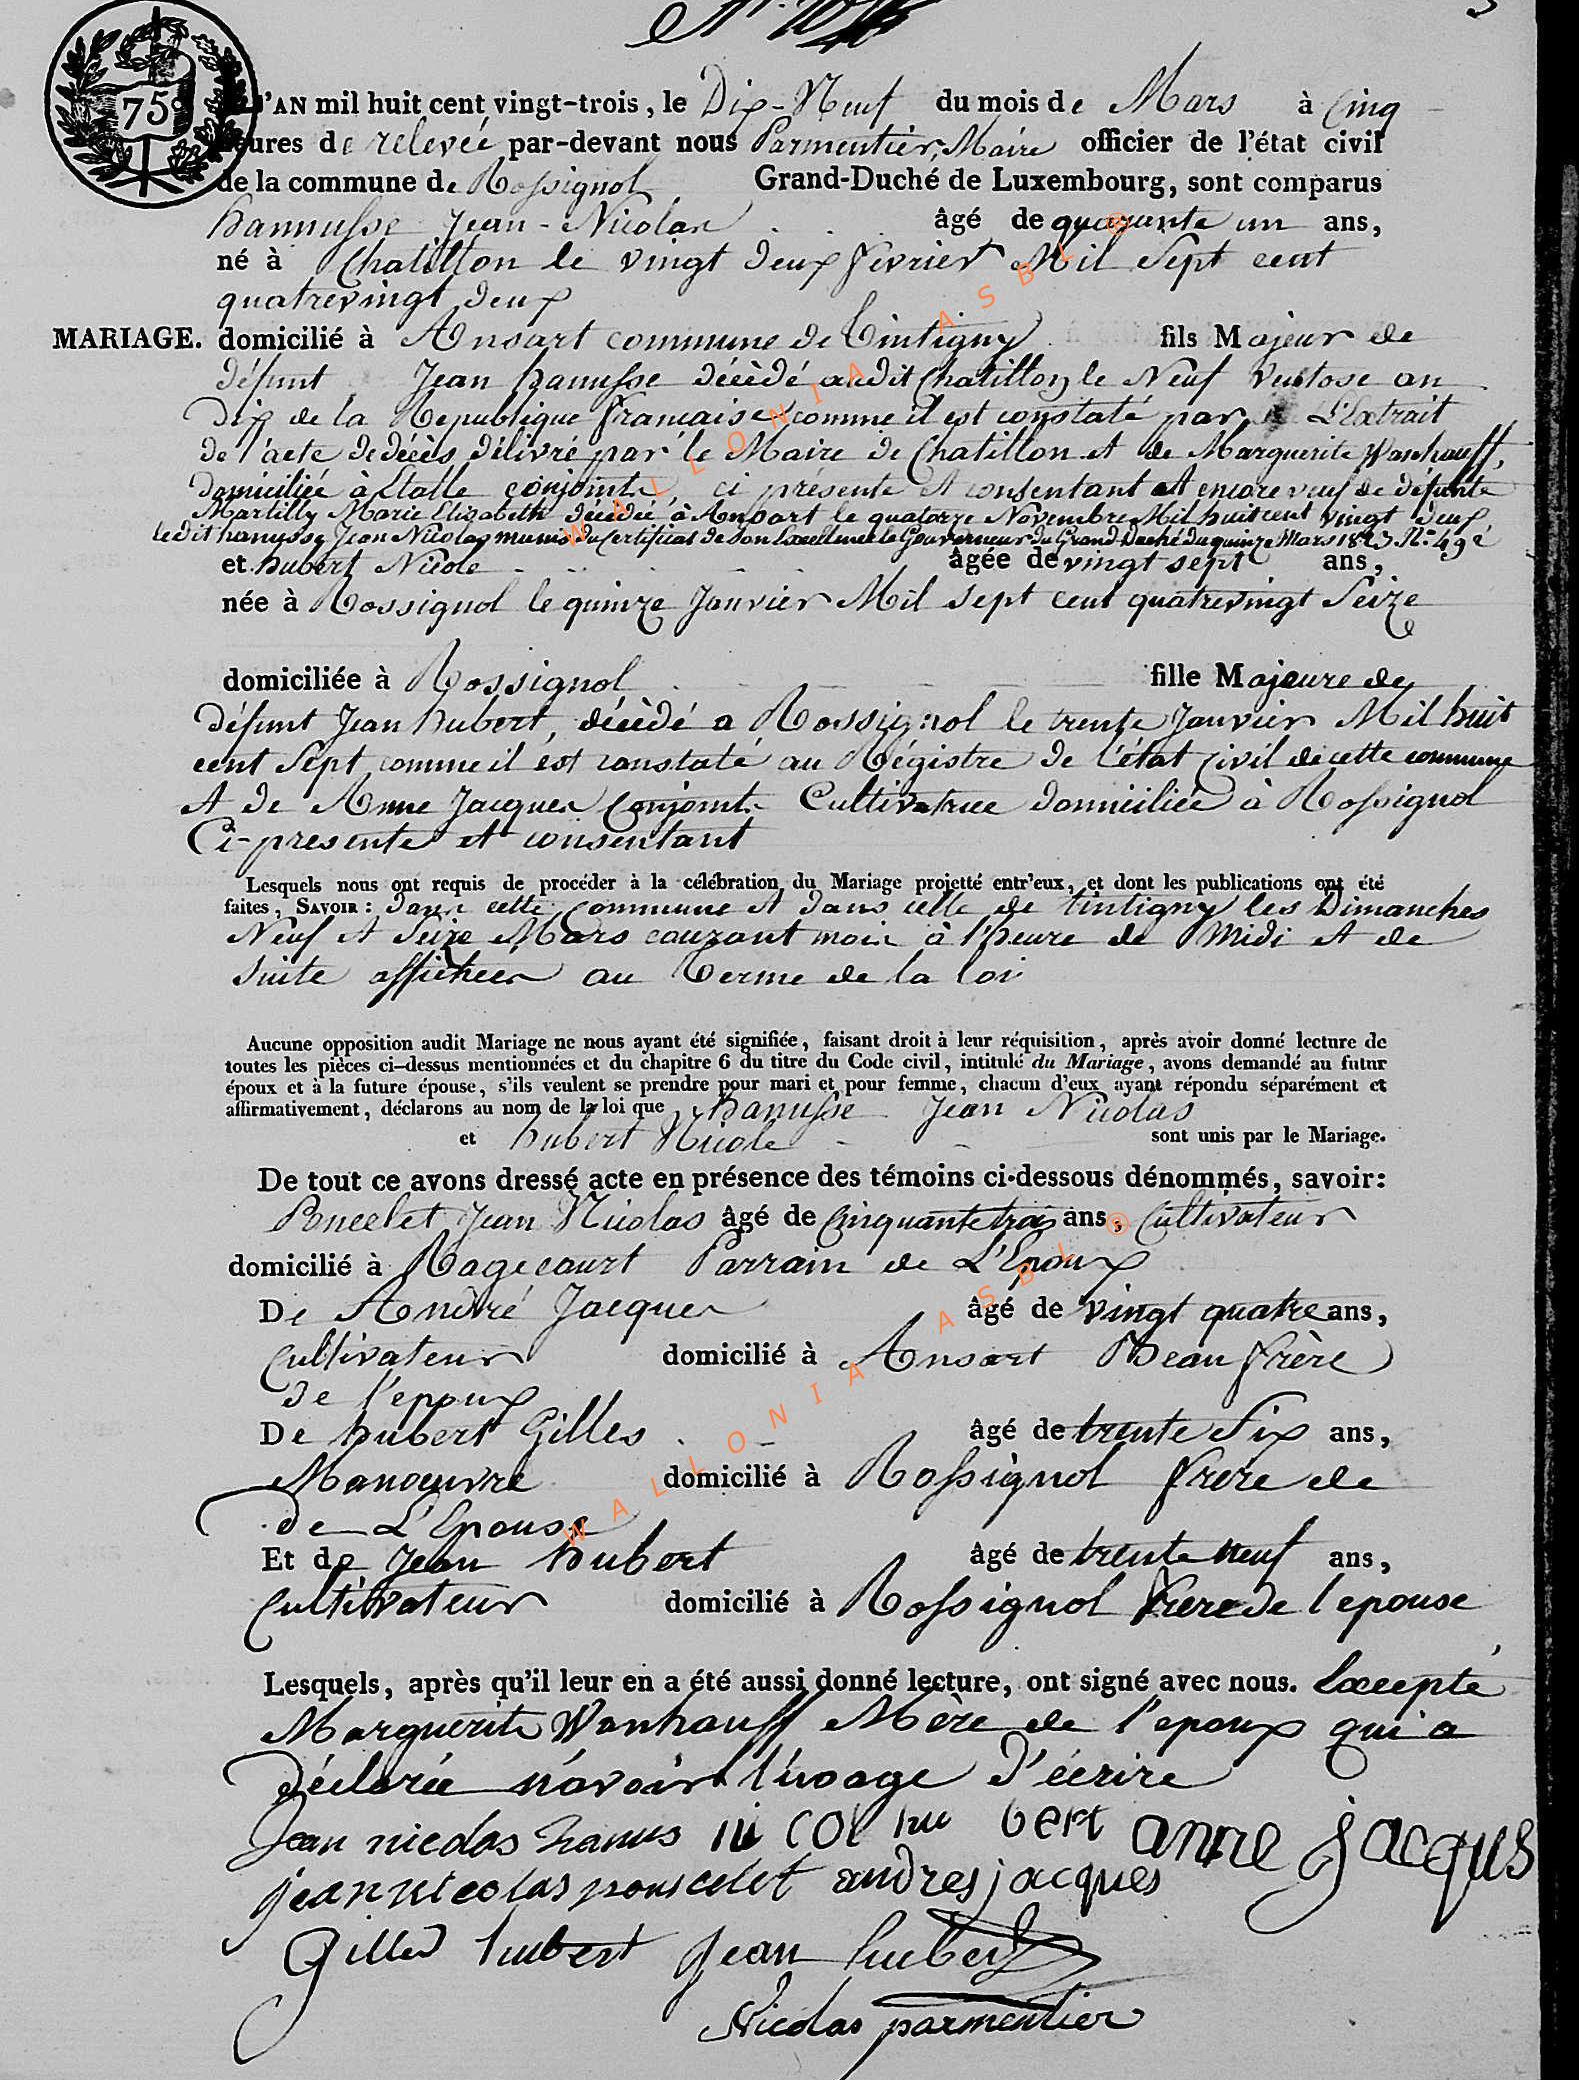 75
L'AN mil huit cent vingt-trois, le Dix-Neuf du mois de Mars à Cinq
heures de relevée par-devant nous Parmentier, Maire officier de l'état civil
de la commune de Rossignol Grand-Duché de Luxembourg, sont comparus
hannusse Jean-Nicolas âgé de quarante un ans,
né à Chatillon le vingt deux fevrier Mil Sept cent
quatrevingt deux
MARIAGE. domicilié à Ansart commune de Tintigny fils Majeur de
défunt Jean hanusse décèdé audit Chatillon le Neuf Ventose an
Dix de la Republique francaise comme il est constaté par L'Extrait
de l'acte de décès délivré par le Maire de Chatillon et de Marguerite Wanhauff,
domiciliée à Etalle conjointe, ci présente et consentant et encore veuf de défunte
Martilly Marie Elizabeth décédée à Ansart le quatorze Novembre Mil huit cent vingt deux
ledit hanusse Jean Nicolas munis du Certificat de Son Excellence le Gouverneur du Grand Duché du quinze Mars 1823 N°
et hubert Nicole âgée de vingt sept ans,
née à Rossignol le quinze Janvier Mil sept cent quatrevingt Seize
domiciliée à Rossignol fille Majeure de
défunt Jean hubert, décèdé a Rossignol le trente Janvier Mil huit
cent Sept comme il est constaté au Régistre de l'état Civil de cette commune
et de Anne Jacques Conjointe Cultivatrice domiciliée à Rossignol
Ci-presente et consentant
Lesquels nous ont requis de procéder à la célébration du Mariage projetté entr'eux, et dont les publications ont été
faites, SAVOIR : dans cette Commune et dans celle de tintigny les Dimanches
Neuf et Seize Mars courant mois à l'heure de Midi et de
suite affichees au Terme de la loi
Aucune opposition audit Mariage ne nous ayant été signifiée, faisant droit à leur réquisition, après avoir donné lecture de
toutes les pièces ci-dessus mentionnées et du chapitre 6 du titre du Code civil, intitulé du Mariage, avons demandé au futur
époux et à la future épouse, s'ils veulent se prendre pour mari et pour femme, chacun d'eux ayant répondu séparément et
affirmativement, déclarons au nom de la loi que hanusse Jean Nicolas
et hubert Nicole sont unis par le Mariage.
De tout ce avons dressé acte en présence des témoins ci-dessous dénommés, savoir:
Poncelet Jean Nicolas âgé de Cinquante trois ans, Cultivateur
domicilié à Ragecourt Parrain de L'Epoux
De André Jacques âgé de vingt quatre ans,
Cultivateur domicilié à Ansart Beau frère
de l'epoux
De hubert Gilles âgé de trente Six ans,
Manoeuvre domicilié à Rossignol frere de
de L'Epouse
Et de Jean hubert âgé de trente neuf ans,
Cultivateur domicilié à Rossignol frere de l'epouse
Lesquels, après qu'il leur en a été aussi donné lecture, ont signé avec nous. Excepté
Marguerite Wanhauff Mère de l'epoux qui a
déclarée n'avoir l'usage d'écrire
Jean nicolas hanus nicol hu bert anne jacques
jean nicolas pouscelet andres jacques
Gilles hubert Jean hubert
Nicolas parmentier
WALLONIA ASBL ®
WALLONIA ASBL ®